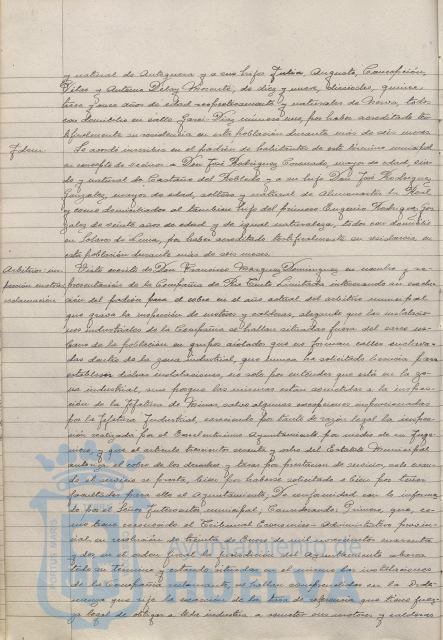 y natural de Antequera y a sus hijos Julia, Augusto, Concepción,
Pilar y Antonio Delay Morente, de diez y nueve, dieciocho, quince,
trece y once años de edad respectivamente y naturales de Nerva, todos
con domicilio en calle Garci Díaz número uno, por haber acreditado tes-
tificalmente su residencia en esta población durante más de seis meses
Idem. Se acordó inscribir en el padrón de habitantes de este término municipal
en concepto de vecinos a Don José Rodríguez Coronado, mayor de edad, viu-
do y natural de Castaño del Robledo y a su hijo Don José Rodríguez
González, mayor de edad, soltero y natural de Almonaster la Real
y como domiciliado al también hijo del primero Eugenio Rodríguez Gon-
zález de veinte años de edad y de igual naturaleza, todos con domicilio
en Soloros de Lima, por haber acreditado testificalmente su residencia en
esta población durante más de seis meses.
Arbitrios ins- Visto escrito de Don Francisco Márquez Domínguez en nombre y re-
pección motores presentación de la Compañía de Río Tinto Limitada interesando su exclu-
reclamación sión del padrón para el cobro en el año actual del arbitrio municipal
que grava la inspección de motores y calderas, alegando que las instalacio-
nes industriales de la Compañía se hallan situadas fuera del casco ur-
bano de la población en grupos aislados que no forman calles enclava-
das dentro de la zona industrial, que nunca ha solicitado licencia para
establecer dichas instalaciones, no solo por entender que está en la zo-
na industrial, sino porque las mismas están sometidas a la inspec-
ción de la Jefatura de Minas, salvo algunas excepciones inspeccionadas
por la Jefatura Industrial, careciendo por tanto de razón legal la inspec-
ción realizada por el Excelentísimo Ayuntamiento por medio de su Inge-
niero, y que el artículo trescientos sesenta y ocho del Estatuto Municipal
autoriza el cobro de los derechos y tasas por prestación de servicios, solo cuan-
do el servicio se presta, bien por haberse solicitado o bien por tener
facultades para ello el Ayuntamiento, De conformidad con lo informa-
do por el Señor Interventor municipal, Considerando: Primero, que, co-
mo tiene reconocido el Tribunal Económico-Administrativo provin-
cial en resolución de treinta de Enero de mil novecientos cuarenta
y dos, en el orden fiscal la jurisdicción del Ayuntamiento abarca
todo su término y estando situadas en el mismo las instalaciones
de la Compañía reclamante, se hallan comprendidas en la Orde-
nanza que rige la exacción de las tasas de referencia que tiene fuer-
za legal de obligar a toda industria a someter sus motores y calderas
PORTUS MARIS